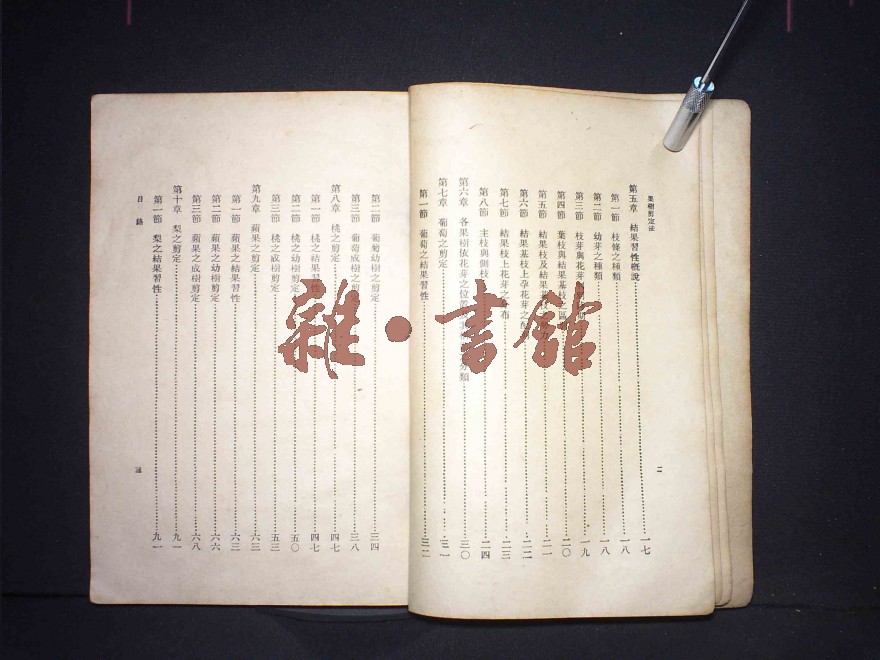 果樹剪定法
二
第五章 結果習性概說 一七
第一節 枝條之種類 一八
第二節 幼芽之種類 一八
第三節 枝芽與花芽 一九
第四節 葉枝與結果基枝之區 二〇
第五節 結果枝及結果基 二一
第六節 結果基枝上孕花芽之 二二
第七節 結果枝上花芽之 布 二三
第八節 主枝與側枝 二四
第六章 各果樹依花芽之位 分類 三〇
第七章 葡萄之剪定 三二
第一節 葡萄之結果習性 三二
第二節 葡萄幼樹之剪定 三四
第三節 葡萄成樹之剪定 三八
第八章 桃之剪定 四七
第一節 桃之結果習性 四七
第二節 桃之幼樹剪定 五〇
第三節 桃之成樹剪定 五三
第九章 蘋果之剪定 六三
第一節 蘋果之結果習性 六三
第二節 蘋果之幼樹剪定 六六
第三節 蘋果之成樹剪定 六八
第十章 梨之剪定 九一
第一節 梨之結果習性 九一
目錄
雜·書館